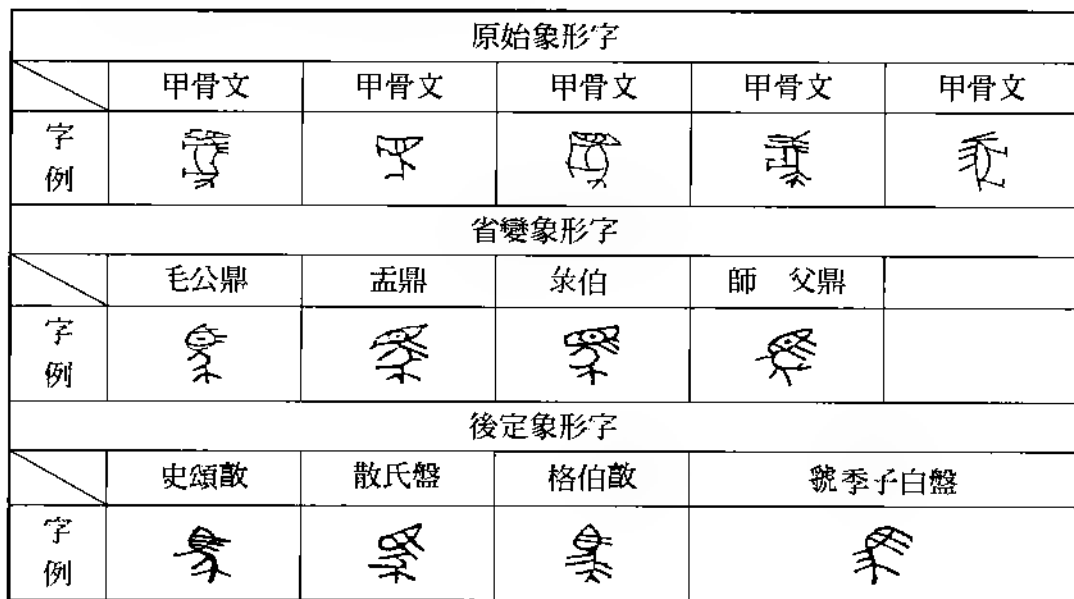 原始象形字
甲骨文 甲骨文 甲骨文 甲骨文 甲骨文
字例
省變象形字
毛公鼎 盂鼎 彔伯 師 父鼎
字例
後定象形字
史頌㪤 散氏盤 格伯㪤 虢季子白盤
字例